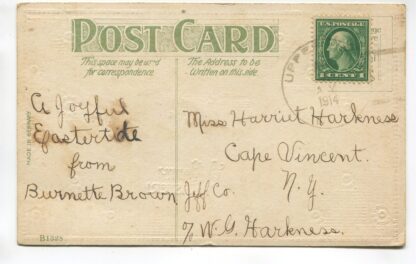 POST CARD
This space may be used
for correspondence.
The Address to be
Written on this side.
U.S. POSTAGE
1 CENT 1
UPPE
1914
MADE IN GERMANY
A Joyful
Eastertide
from
Burnette Brown
Miss Harriet Harkness
Cape Vincent.
Jeff Co. N.Y.
c/o W.G. Harkness.
B1328